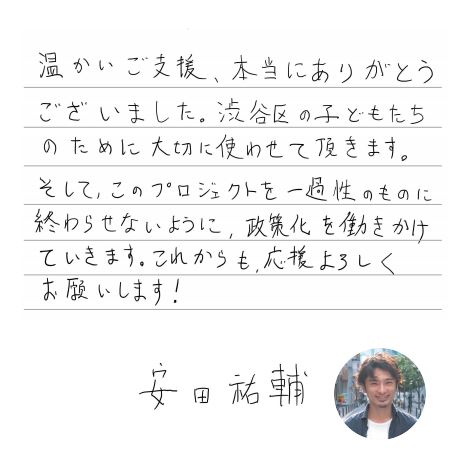 温かいご支援、本当にありがとう
ございました。渋谷区の子どもたち
のために大切に使わせて頂きます。
そして、このプロジェクトを一過性のものに
終わらせないように、政策化を働きかけ
ていきます。これからも、応援よろしく
お願いします！
安田祐輔